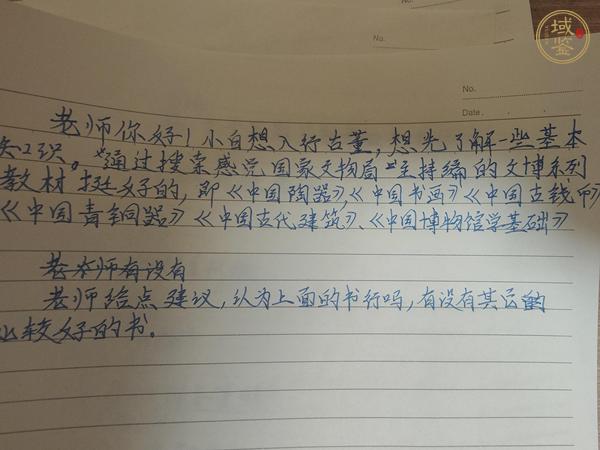 No.
No.
域
鉴
No.
Date
老师你好！小白想入行古董，想先了解一些基本
知识。"通过搜索感觉国家文物局"主持编的文博系列
教材挺好的，即《中国陶器》，《中国书画》《中国古钱币》
《中国青铜器》《中国古代建筑》、《中国博物馆学基础》
老本师有没有
老师给点建议，认为上面的书行吗，有没有其它的
比较好的书。